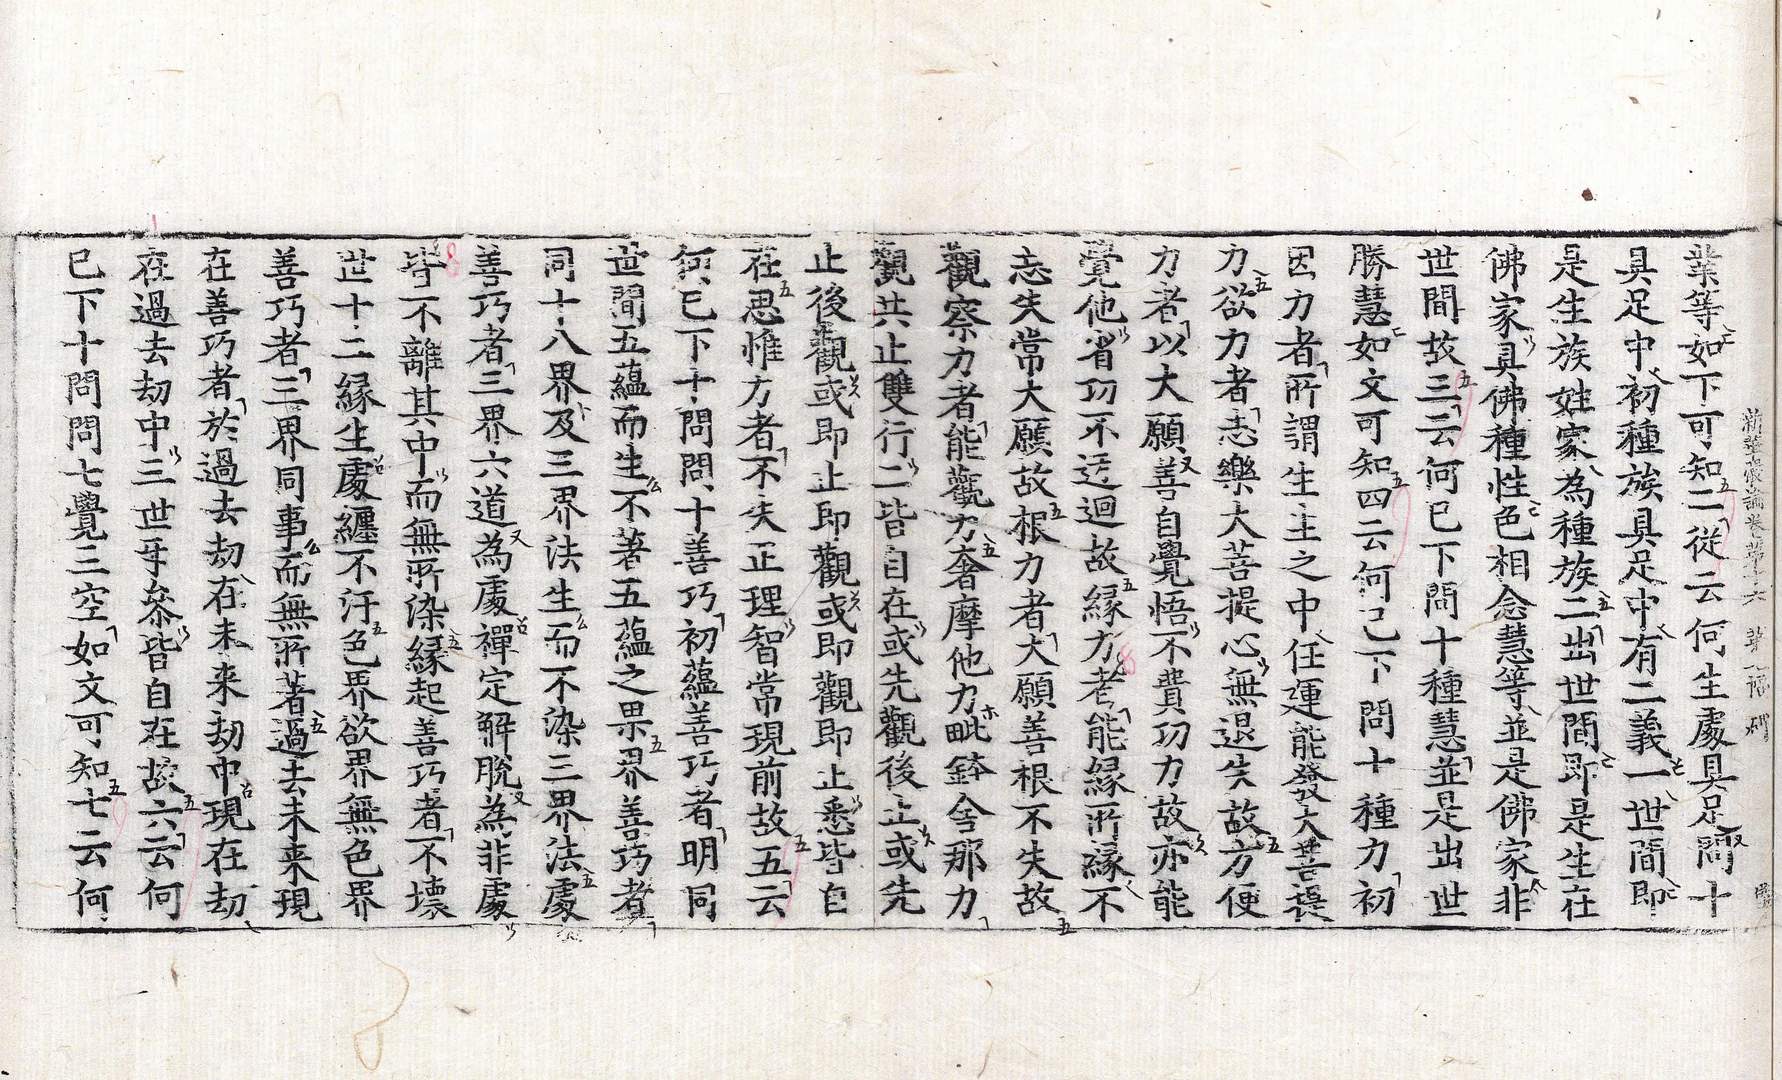 新華嚴論卷第十六
業等如下可知二從云何生處具足問十
具足中初種族具足中有二義一世間即
是生族姓家為種族二出世間即是生在
佛家具佛種性色相念慧等並是佛家非
世間故三云何已下問十種慧並是出世
勝慧如文可知四云何已下問十種力初
因力者所謂生主之中任運能發大菩提
力欲力者志樂大菩提心無退失故方便
力者以大願善自覺悟不費功力故亦能
覺他省功不迂迴故緣方者能緣所緣不
忘失常大願故根力者大願善根不失故
觀察力者能觀力奢摩他力毗鉢舍那力
觀共止雙行二皆自在或先觀後止或先
止後觀或即止即觀或即觀即止悉皆自
在思惟方者不失正理智常現前故五云
何已下十問問十善巧初蘊善巧者明同
世間五蘊而生不著五蘊之果界善巧者
同十八界及三界法生而不染三界法處
善巧者三界六道為處禪定解脫為非處
皆不離其中而無所染緣起善巧者不壞
世十二緣生處纏不汙色界欲界無色界
善巧者三界同事而無所著過去未來現
在善巧者於過去劫在未來劫中現在劫
在過去劫中三世互叅皆自在故六云何
已下十問問七覺三空如文可知七云何